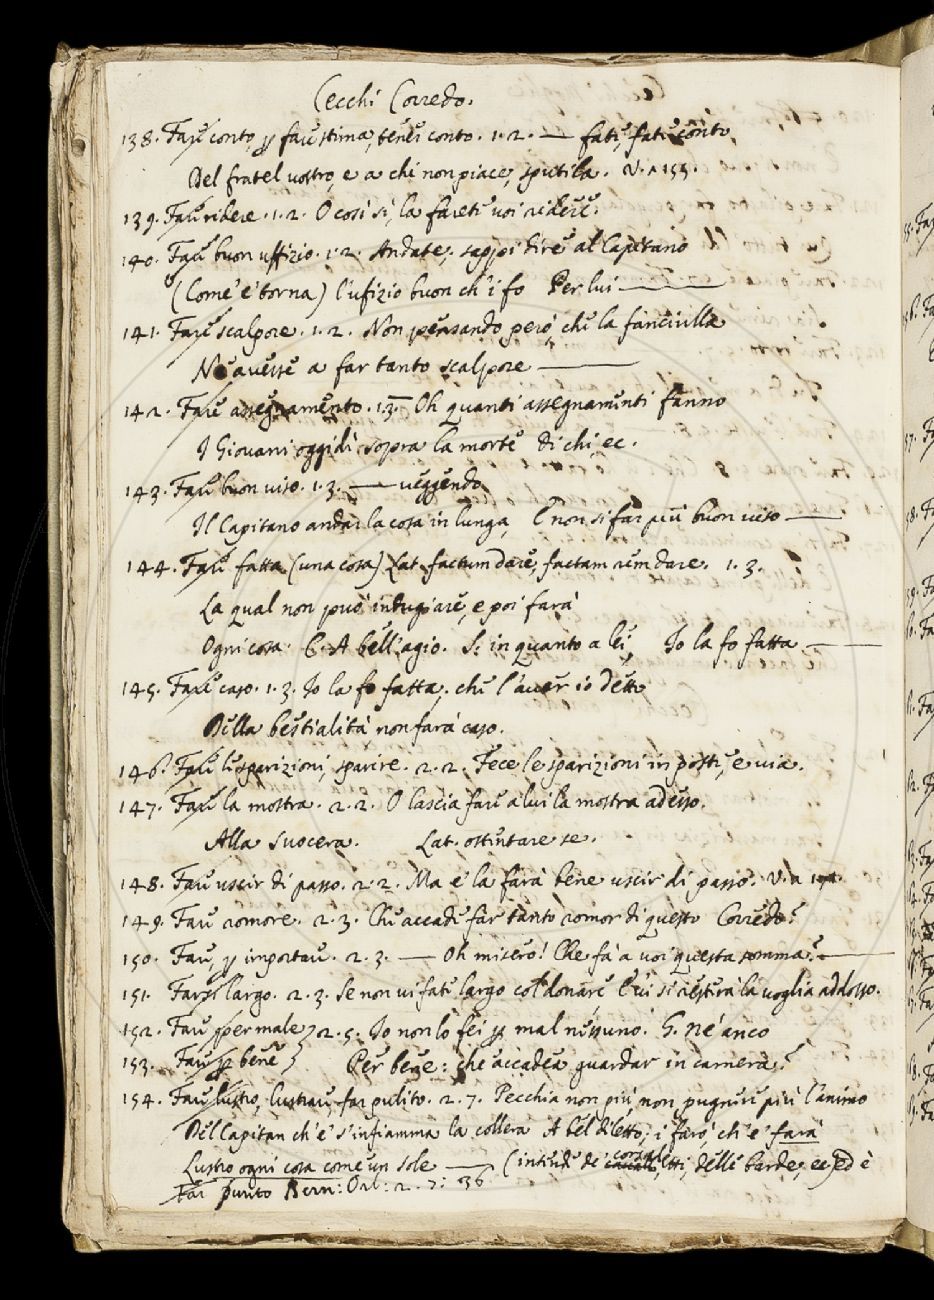 Cecchi Corredo.
138. Fare conto, p fare stima, tener conto. 1. 2. — fate, fate conto,
Del fratel vostro, e a chi non piace, sputila. V. n 155.
139. Fare ridere. 1. 2. O così sì, la farete voi ridere.
140. Fare buon uffizio. 1. 2. Andate, sappi dire al Capitano
(Come e' torna) l'ufizio buon ch'i fo Per lui —
141. Fare scalpore. 1. 2. Non pensando però, che la fanciulla
N'avesse a far tanto scalpore —
142. Fare assegnamento. 1. 3. Oh quanti assegnamenti fanno
I Giovani oggidì sopra la morte di chi ec.
143. Fare buon viso. 1. 3. — veggendo
Il Capitano andar la cosa in lunga, E non si far più buon viso —
144. Fare fatta (una cosa) Lat. factum dare, factam rem dare. 1. 3.
La qual non può indugiare, e poi farà
Ogni cosa. C. A bell'agio. Si in quanto a lei, Io la fo fatta —
145. Fare caso. 1. 3. Io la fo fatta; che l'aver io detto
Della bestialità non farà caso.
146. Fare le sparizioni, sparire. 2. 2. Fece le sparizioni in poste, e via.
147. Fare la mostra. 2. 2. O lascia fare a lui la mostra adesso.
Alla suocera. Lat. ostentare se.
148. Fare uscir di passo. 2. 2. Ma e' la farà bene uscir di passo. V. n
149. Fare romore. 2. 3. Che accade far tanto romor di questo Corredo?
150. Fare, p importare. 2. 3. — Oh misero! Che fà a voi questa somma? —
151. Farsi largo. 2. 3. Se non vi fate largo col donare E vi si resterà la voglia addosso.
152. Fare p male } 2. 5. Io non lo fei p mal nessuno. G. Nè anco
153. Fare p bene } Per bene: che accadea guardar in camera?
154. Fare lustro, lustrare, far pulito. 2. 7. Pecchia non più, non pugnere più l'animo
Del Capitan ch'e' s'infiamma la collera A bel diletto; i' farò, ch'e' farà
Lustro ogni cosa come un sole — (intende de' corsaletti, delle barde, ec) ed è
Far punto Bern: Orl: 2. 7: 36